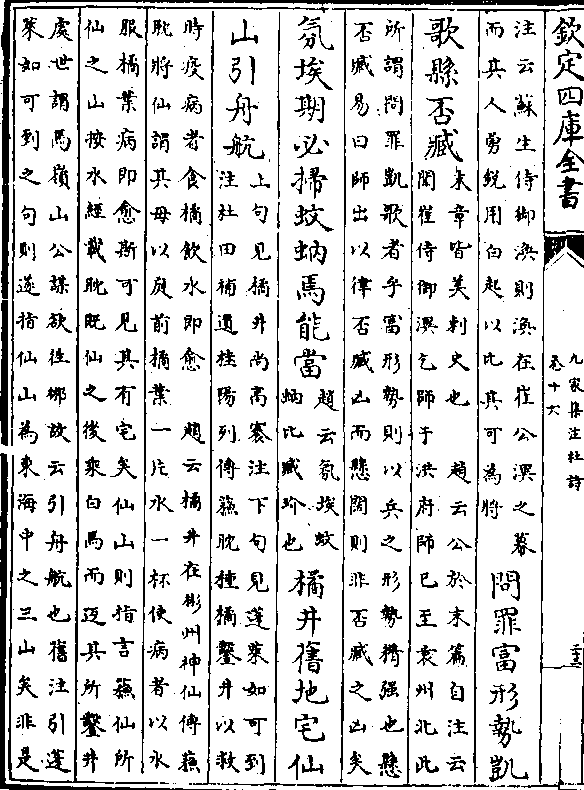 欽定四庫全書
九家集注杜詩
卷十六
注云蘇生侍御渙則渙在崔公潩之幕
而其人勇銳用白起以比其可為將
問罪富形勢凱
歌縣否臧
末章皆美刺史也　趙云公於末篇自注云
聞崔侍御潩乞師于洪府師已至袁州北此
所謂問罪凱歌者乎富形勢則以兵之形勢猶强也懸
否臧易曰師出以律否臧凶而懸闊則非否臧之凶矣
氛埃期必掃蚊蚋焉能當
趙云氛埃蚊
蚋比臧玠也
橘井舊地宅仙
山引舟航
上句見橘井尚高褰注下句見蓬萊如可到
注杜田補遺桂陽列傳蘇耽種橘鑿井以救
時疫病者食橘飲水即愈　趙云橘井在彬州神仙傳蘇
耽將仙謂其母以庭前橘葉一片水一杯使病者以水
服橘葉病即愈斯可見其有宅矣仙山則指言蘇仙所
仙之山按水經載耽既仙之後乘白馬而返其所鑿井
處世謂馬嶺山公謀欲往郴故云引舟航也舊注引蓬
萊如可到之句則遂指仙山為東海中之三山矣非是